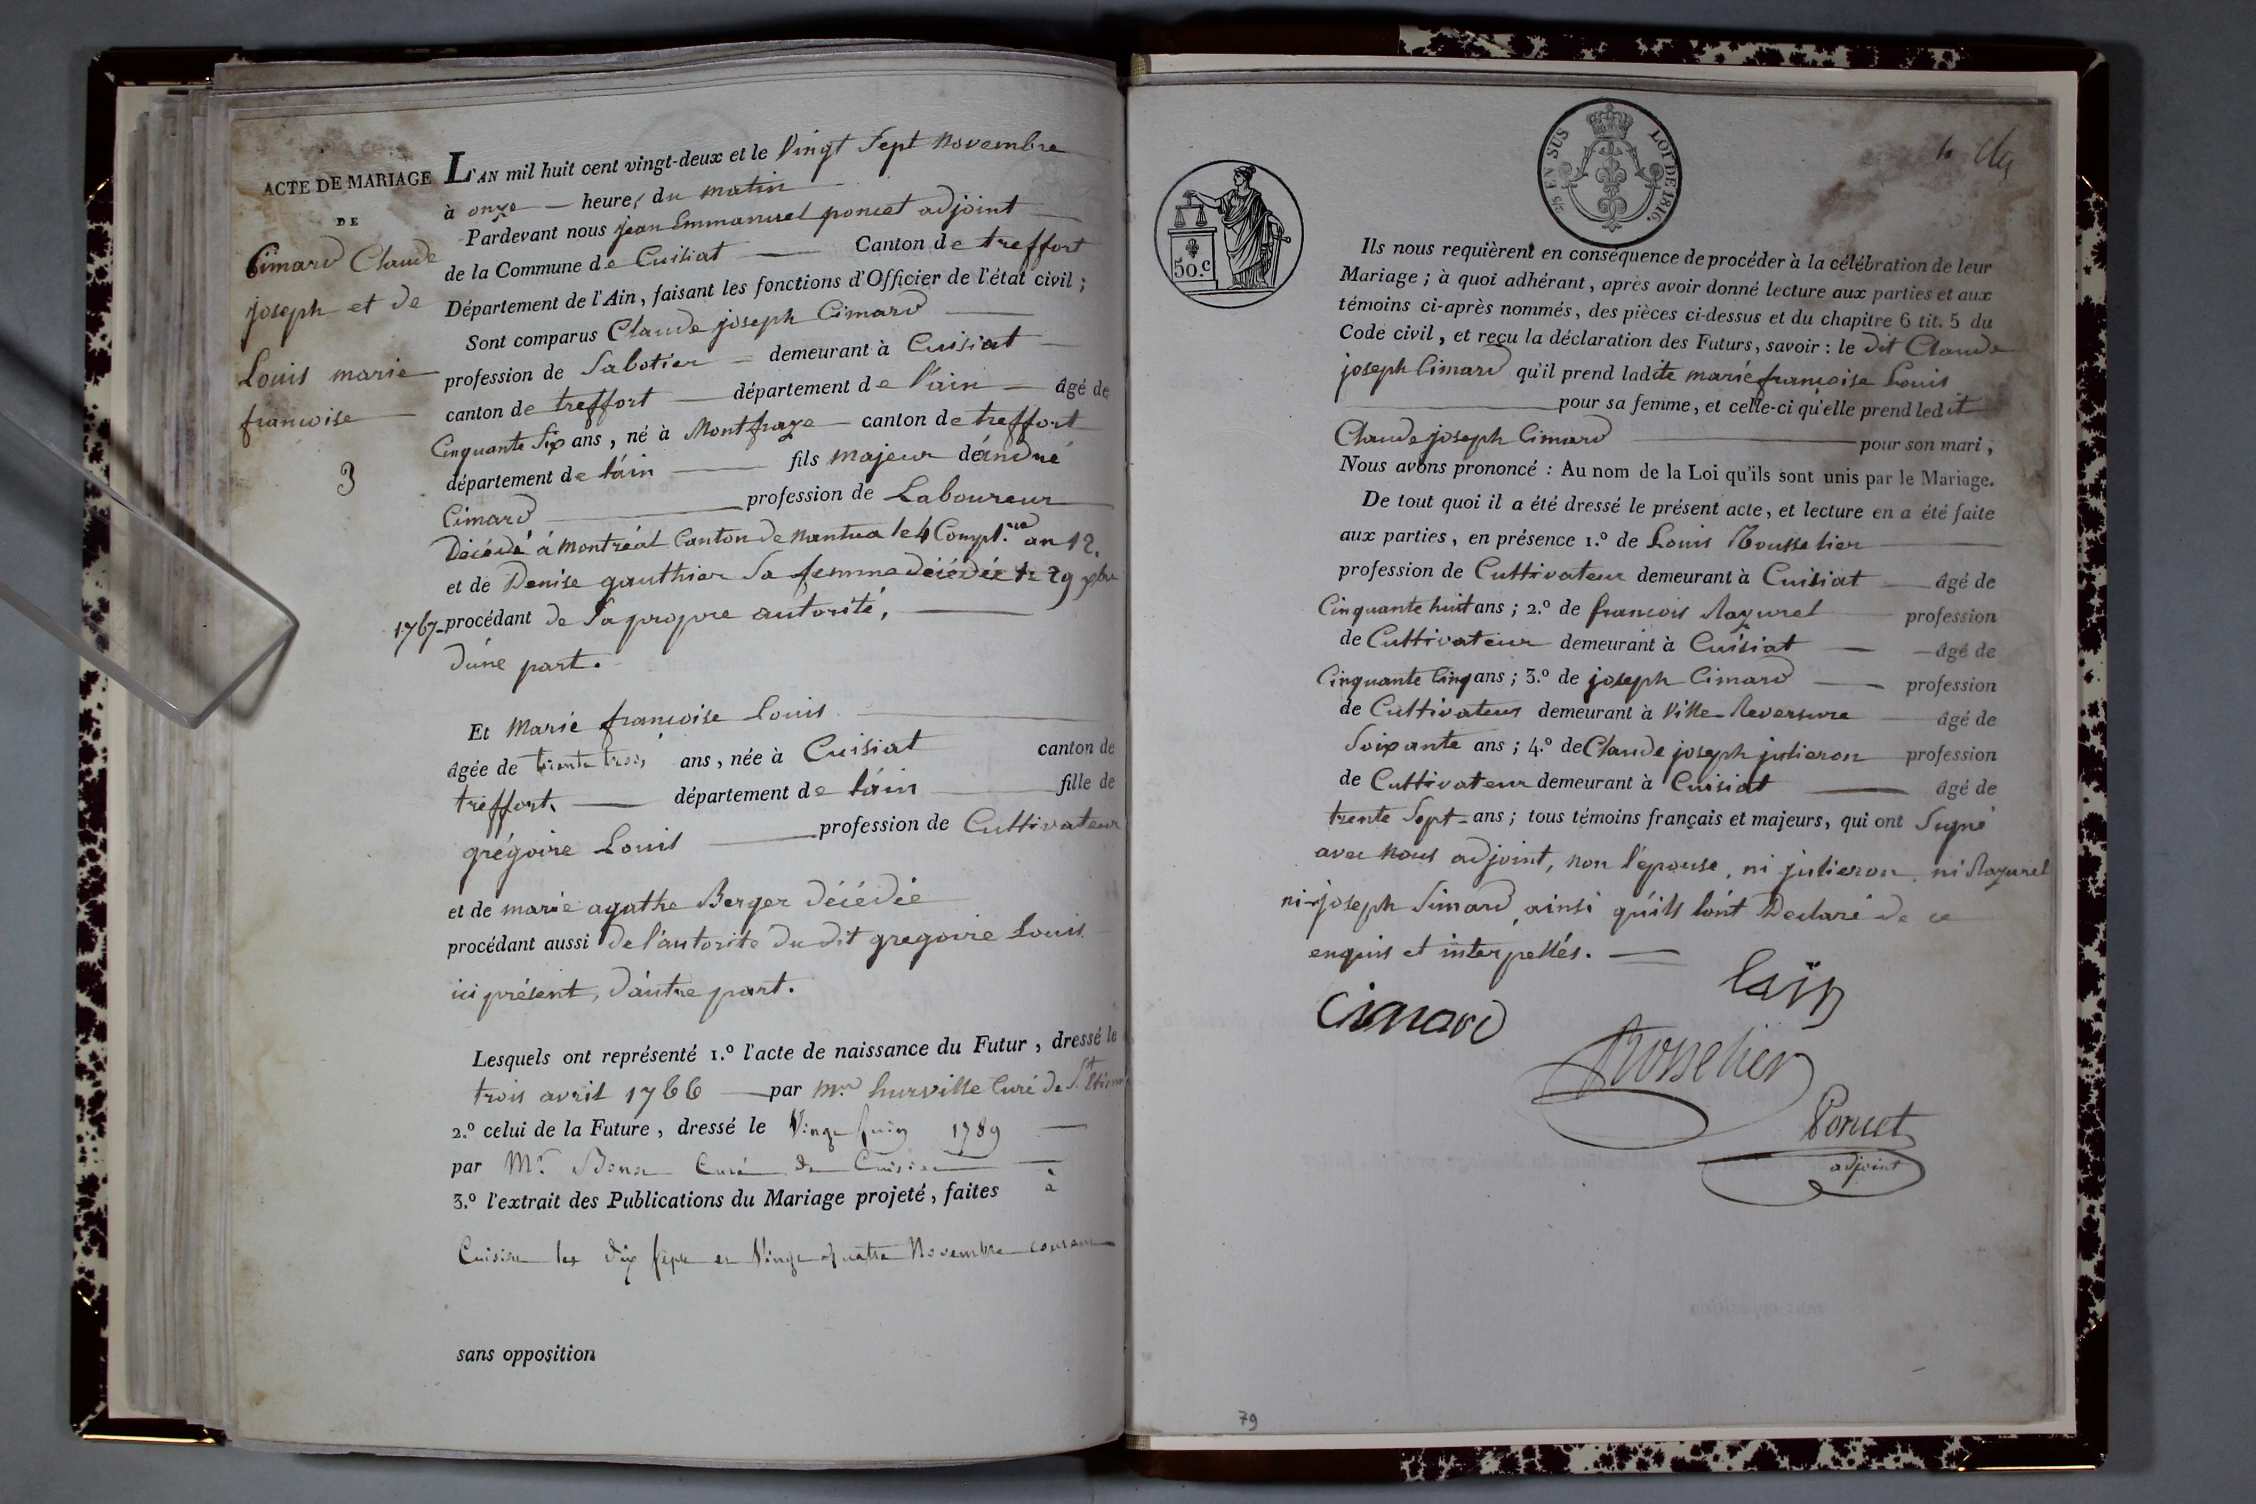 ACTE DE MARIAGE
DE
Cimard Claude
joseph et de
Louis marie
francoise
3
L'AN mil huit cent vingt-deux et le Vingt Sept novembre
à onze heures du matin
Pardevant nous jean Emmanuel poncet adjoint
de la Commune de Cuisiat Canton de treffort
Département de l'Ain, faisant les fonctions d'Officier de l'état civil ;
Sont comparus Claude joseph Cimard
profession de Sabotier demeurant à Cuisiat
canton de treffort département de l'ain âgé de
Cinquante Six ans, né à Montfraze canton de treffort
département de l'áin fils majeur d'éandré
Cimard profession de Laboureur
Décédé á Montréal Canton de nantua le 4 Compl.re an 12.
et de Denise gauthier Sa femme décédée le 29 xbre
1767 procédant de Sa propre autorité,
d'une part.
Et Marie francoise Louis
âgée de trente trois ans, née à Cuisiat canton de
treffort département de l'áin fille de
grégoire Louis profession de Cultivateur
et de marie agathe Berger décédée
procédant aussi de l'autorité du dit gregoire Louis
ici présent, d'autre part.
Lesquels ont représenté 1.º l'acte de naissance du Futur, dressé le
trois avril 1766 par Mr. hurville Curé de St. Etienne
2.º celui de la Future, dressé le Vingt juin 1789
par Mr. Curé de Cuisiat
3.º l'extrait des Publications du Mariage projeté, faites à
Cuisiat les dix sept et Vingt quatre Novembre courant
sans opposition
50.C
25 EN SUS
LOI DE 1816.
Ils nous requièrent en conséquence de procéder à la célébration de leur
Mariage ; à quoi adhérant, après avoir donné lecture aux parties et aux
témoins ci-après nommés, des pièces ci-dessus et du chapitre 6 tit. 5 du
Code civil, et reçu la déclaration des Futurs, savoir : le dit Claude
joseph Cimard qu'il prend ladite marie francoise Louis
pour sa femme, et celle-ci qu'elle prend ledit
Claude joseph Cimard pour son mari ;
Nous avons prononcé : Au nom de la Loi qu'ils sont unis par le Mariage.
De tout quoi il a été dressé le présent acte, et lecture en a été faite
aux parties, en présence 1.º de Louis Rousselier
profession de Cultivateur demeurant à Cuisiat âgé de
Cinquante huit ans ; 2.º de francois Razurel profession
de Cultivateur demeurant à Cuisiat âgé de
Cinquante Cinq ans ; 3.º de joseph Cimard profession
de Cultivateur demeurant à Ville-Reversure âgé de
Soixante ans ; 4.º de Claude joseph julieron profession
de Cultivateur demeurant à Cuisiat âgé de
trente Sept ans ; tous témoins français et majeurs, qui ont Signé
avec nous adjoint, non l'épouse, ni julieron, ni Razurel
ni joseph Simard ainsi qu'ils l'ont Declaré de ce
enquis et interpellés.
Cimard
Rosselier
Poncet
adjoint
79